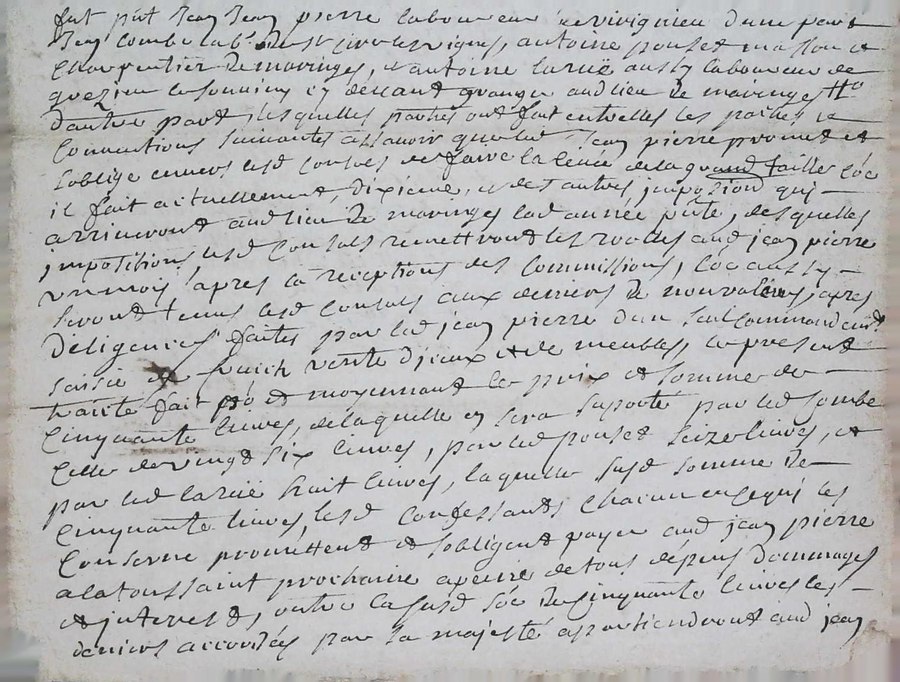 fut pnt Jean Jean pierre laboureur de virignieu d'une part
Jean Combe lab.r de St Cire les vignes, antoine pouset masson et
Charpentier de maringes, et antoine larüe aussy laboureur de
en dellant granger aud lieu de maringes
d'autre part, lesquelles parties ont fait entrelles les pactes et
Conventions suivantes assavoir que led Jean pierre promet et
soblige envers lesd Consuls de faire la levée de la grand taille
il fait actuellement, dixieme, et des autres imposition qui
arriveront aud lieu de maringes lad année pnte, desquelles
impositions lesd Consuls remettront les rolles aud jean pierre
un mois apres la receptions des Commissions, aussy
seront tenus lesd Consuls aux deniers de nonvaleurs, apres
deligences faites par led jean pierre d'un seul Commandement
saisie vente et de meubles, le present
traité fait et moyennant le prix et somme de
Cinquante livres, de laquelle en sera suporté par led Combe
Celle de vingt six livres, par led pouset seize livres, et
par led larüe huit livres, laquelle susd somme de
Cinquante livres, lesd Confessants Chacun en ce qui les
Conserne promettent et sobligent payer aud jean pierre
a la toussaint prochaine a peine de tous depens dommages
et interest, outre la susd de Cinquante livres les
deniers accordés par sa majesté apartiendront aud jean